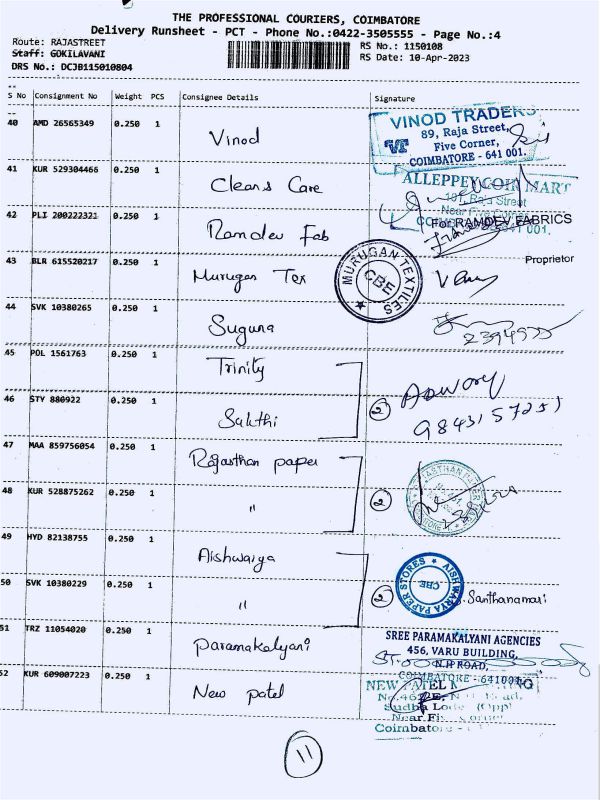 THE PROFESSIONAL COURIERS, COIMBATORE
Delivery Runsheet - PCT - Phone No.:0422-3505555 - Page No.:4
Route: RAJASTREET
RS No.: 1150108
Staff: GOKILAVANI
RS Date: 10-Apr-2023
DRS No.: DCJB115010804
S No Consignment No Weight PCS Consignee Details Signature
40 AMD 26565349 0.250 1 Vinod
VINOD TRADERS
89, Raja Street,
Five Corner,
COIMBATORE - 641 001.
41 KUR 529304466 0.250 1 Cleans Care
ALLEPPEY COIR MART
101, Raja Street
Near Five Corner
42 PLI 200222321 0.250 1 Ramdev Fab
For RAMDEV FABRICS
Proprietor
43 BLR 615520217 0.250 1 Murugan Tex
MURUGAN TEXTILES
CBE
44 SVK 10380265 0.250 1 Suguna
45 POL 1561763 0.250 1 Trinity
46 STY 880922 0.250 1 Sakthi
2
47 MAA 859756054 0.250 1 Rajasthan paper
48 KUR 528875262 0.250 1 "
2
49 HYD 82138755 0.250 1 Aishwarya
50 SVK 10380229 0.250 1 "
2
AISHWARYA PAPER STORES
CBE
Santhanamari
51 TRZ 11054020 0.250 1 Paramakalyani
SREE PARAMAKALYANI AGENCIES
456, VARU BUILDING,
N.H ROAD,
COIMBATORE - 641001
52 KUR 609007223 0.250 1 New patel
NEW PATEL
Sudha Lodge (Opp)
Near Five Corner
Coimbatore -
11